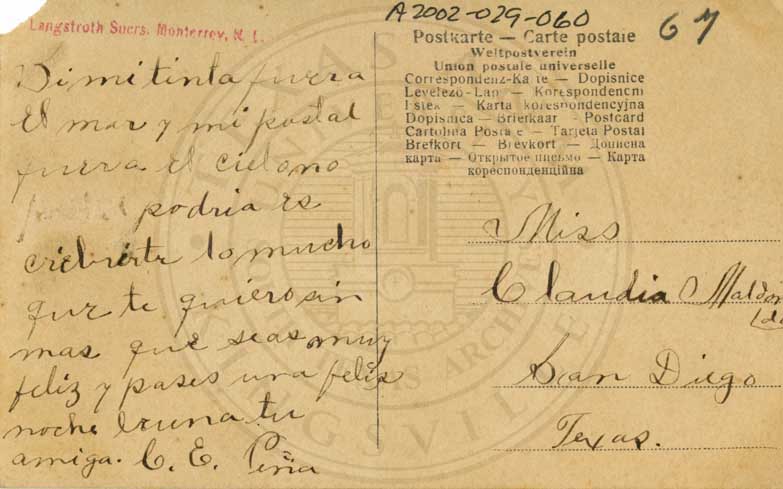 A2002-029-060
67
Langstroth Sucrs. Monterrey, N. L.
Postkarte — Carte postale
Weltpostverein
Union postale universelle
Correspondenz-Karte — Dopisnice
Levelező-Lap — Korespondencni
listek — Karta korespondencyjna
Dopisnica — Briefkaar — Postcard
Cartolina Postale — Tarjeta Postal
Brefkort — Brevkort — Дописна
карта — Открытое письмо — Карта
кореспонденційна
Si mi tinta fuera
El mar y mi postal
fuera el cielo no
podria es
cribirte lo mucho
que te quiero sin
mas que seas muy
feliz y pases una feliz
noche buena tu
amiga. C. E. Peña
Miss
Claudia Maldon
ado
San Diego
Texas.